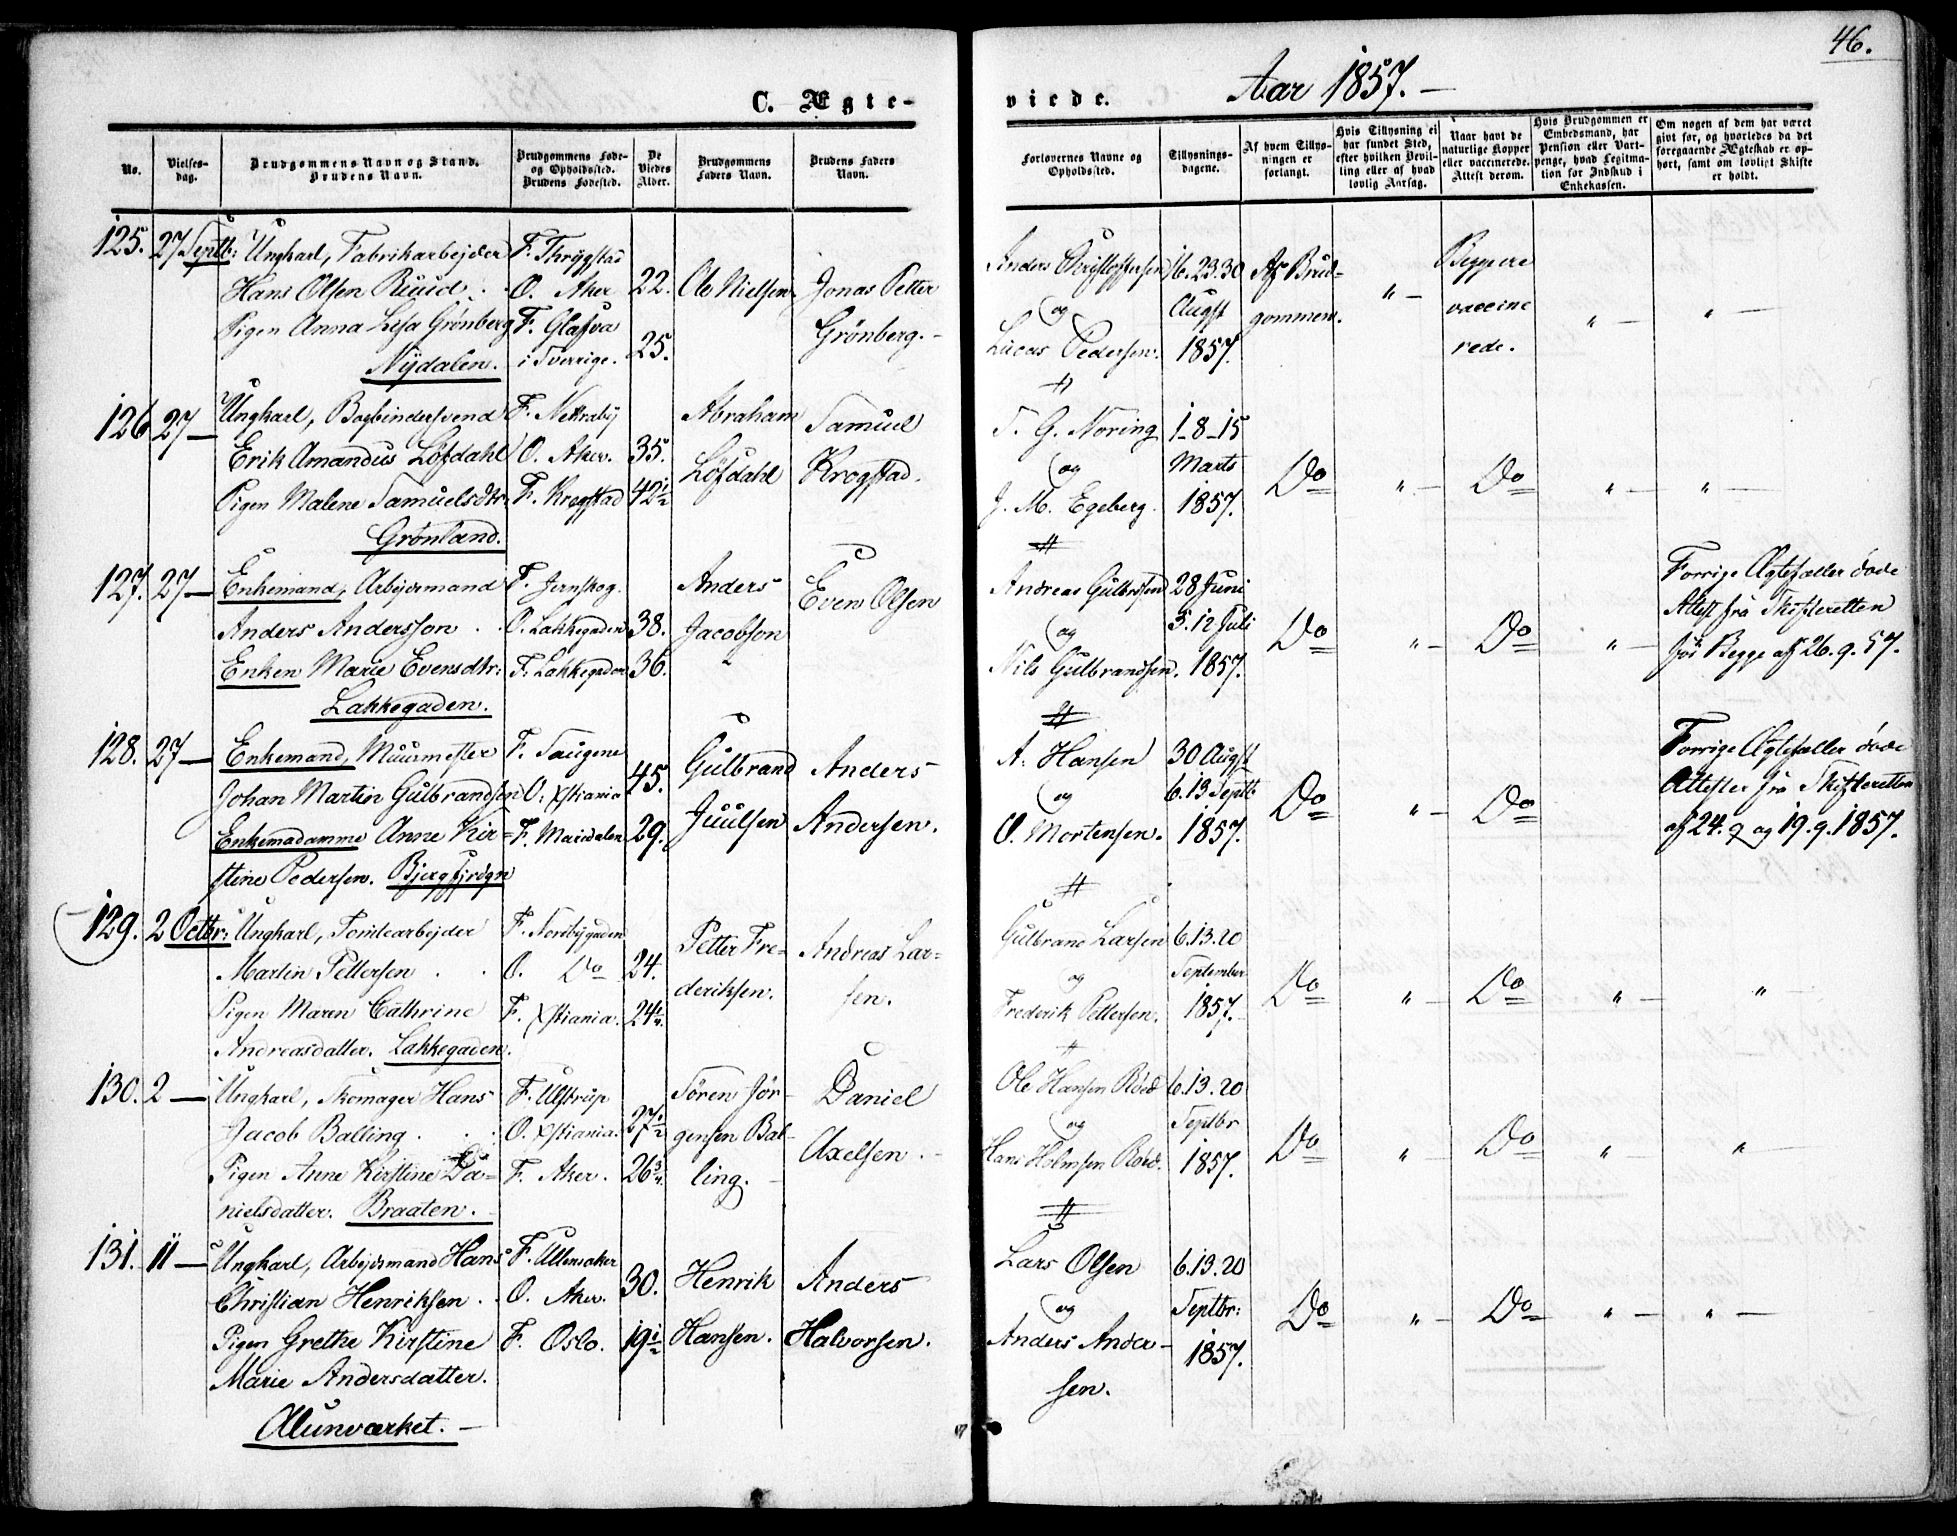 46.
C. Ægte-
viede.
Aar 1857.
No.
Vielses-
dag.
Brudgommens Navn og Stand.
Brudens Navn.
Brudgommens Føde-
og Opholdssted.
Brudens Fødested.
De
Viedes
Alder.
Brudgommens
Faders Navn.
Brudens Faders
Navn.
Forlovernes Navne og
Opholdssted.
Tillysnings-
dagene.
Af hvem Tillys-
ningen er
forlangt.
Hvis Tillysning ei
har fundet Sted,
efter hvilken Bevil-
ling eller af hvad
lovlig Aarsag.
Naar havt de
naturlige Kopper
eller vaccinerede.
Attest derom.
Hvis Brudgommen er
Embedsmand, har
Pension eller Vart-
penge, hvad Legitima-
tion for Indskud i
Enkekassen.
Om nogen af dem har været
givt før, og hvorledes da det
foregaaende Ægteskab er op-
hørt, samt om lovligt Skifte
er holdt.
125. 27 Septb: Ungkarl, Fabrikarbejder F. Thrygstad
Hans Olsen Ruud . . O. Aker 22. Ole Nielsen Jonas Petter
Pigen Anna Lisa Grønberg F. Glafva 25. Grønberg.-
Nydalen. i Sverrige.
Anders Christoffersen 16.23.30 Af Brud- Begge
og August gommen. " - vaccine " - " -
Lucas Pedersen. 1857. rede.
126 27 - Ungkarl, Bogbindersvend F. Abraham Samuel
Erik Amandus Löfdahl O. Aker. 35. Löfdahl Krogstad.
Pigen Malene Samuelsdtr. F. Krogstad 42½
Grønland.
T. G. Noring 1-8-15
og Marts Do " - Do " - " -
J. M. Egeberg. 1857.
127. 27 - Enkemand, Arbejdsmand F. Jernskog. Anders Even Olsen
Anders Andersson . . O. Lakkegaden 38. Jacobson
Enken Marie Evensdtr: F. Lakkegaden 36.
Lakkegaden.
Andreas Gulbrdsen 28 Juni Forrige Ægtefæller døde
og 5. 12 Juli Do " - Do " - Attest fra Skifteretten
Nils Gulbrandsen. 1857. for Begge af 26. 9. 57.
128. 27 - Enkemand, Muurmester F. Saugene Gulbrand Anders
Johan Martin Gulbrandsen O. Xstiania 45. Juulsen Andersen.
Enkemadamme Anne Kir- F. Maridalen 29.
stine Pedersen. Bjergfjrdgn
A. Hansen 30 Augst Forrige Ægtefæller døde
og 6. 13 Septb Do " - Do Attester fra Skifteretten
O. Mortensen. 1857. af 24. 9 og 19. 9. 1857.
129. 2 Octbr: Ungkarl, Tomtearbejder F. Nordbygaden Petter Fre- Andreas Lar-
Martin Pettersen . . O. Do 24. deriksen. sen.
Pigen Maren Cathrine F. Xstiania. 24¼
Andreasdatter. Lakkegaden.
Gulbrand Larsen 6.13.20
og September Do " - Do " - " -
Frederik Pettersen. 1857.
130. 2 - Ungkarl, Skomager Hans F. Ulstrup Søren Jør- Daniel
Jacob Balling . . O. Xstiania. 27½ gensen Bal- Axelsen.
Pigen Anne Kirstine Da- F. Aker. 26¾ ling. -
nielsdatter. Braaten.
Ole Hansen Röed 6.13.20
og Septbr Do " - Do " - " -
Hans Holmsen Röed. 1857.
131. 11 - Ungkarl, Arbejdsmand Hans F. Ullensaker
Christian Henriksen . O. Aker. 30. Henrik Anders
Pigen Grethe Kirstine F. Oslo. 19½ Hansen. Halvorsen.
Marie Andersdatter.
Alunværket. -
Lars Olsen 6.13.20
og Septbr: Do " - Do " - " -
Anders Ander- 1857.
sen.